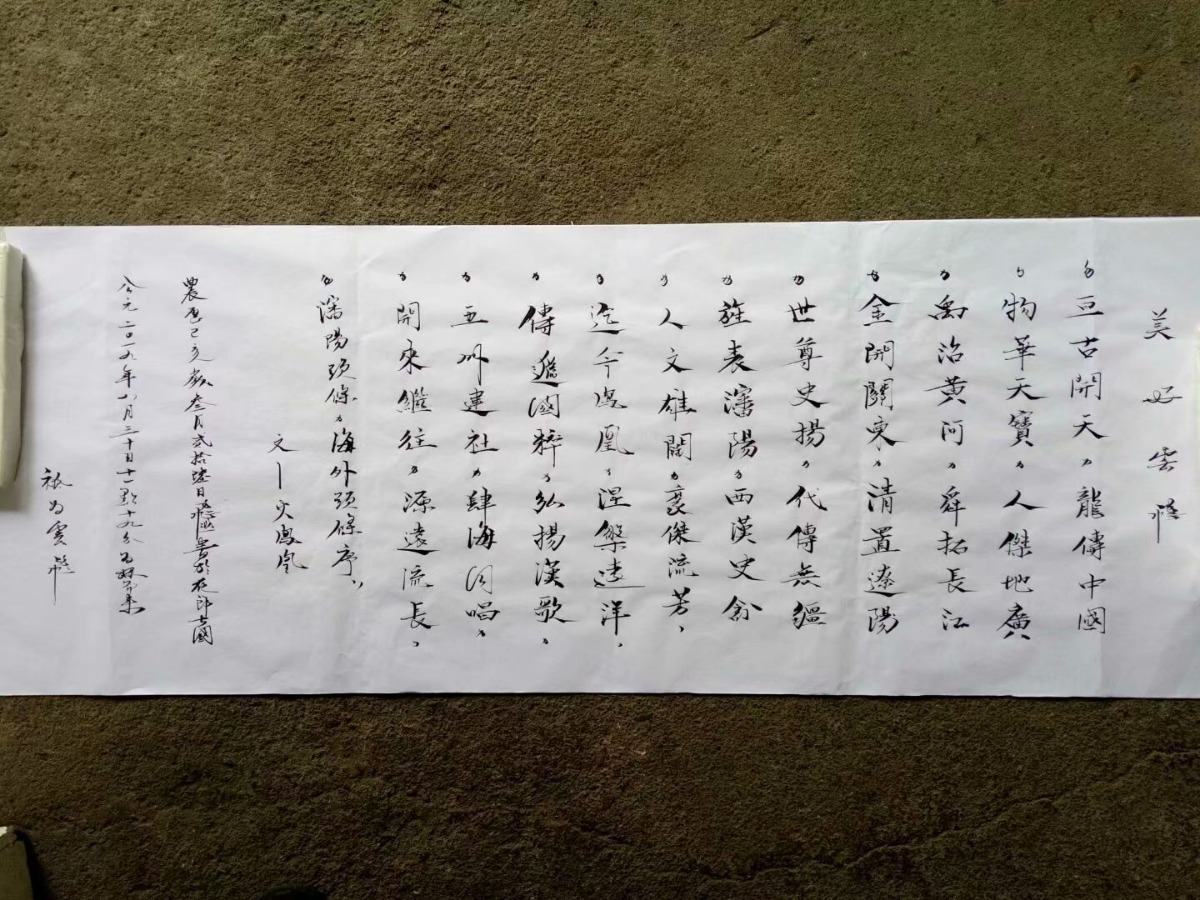 美好雲
亘古開天，龍傳中國
物華天寶，人傑地廣
禹治黄河，舜拓長江
金開關東，清置遼陽
世尊史揚，代傳無繮
旌表瀋陽，西漢史
人文雄闊，豪傑流芳，
迄今鳳凰，涅槃遠洋，
傳遞國粹，弘揚漢歌，
五州建社，肆海同唱，
開來繼往，源遠流長，
瀋陽頭條，海外頭條序，
文—火鳳凰
農歷己亥歲叁月貳拾陸日於夜郎古國
公元二〇一九年八月三十日十一點十九分